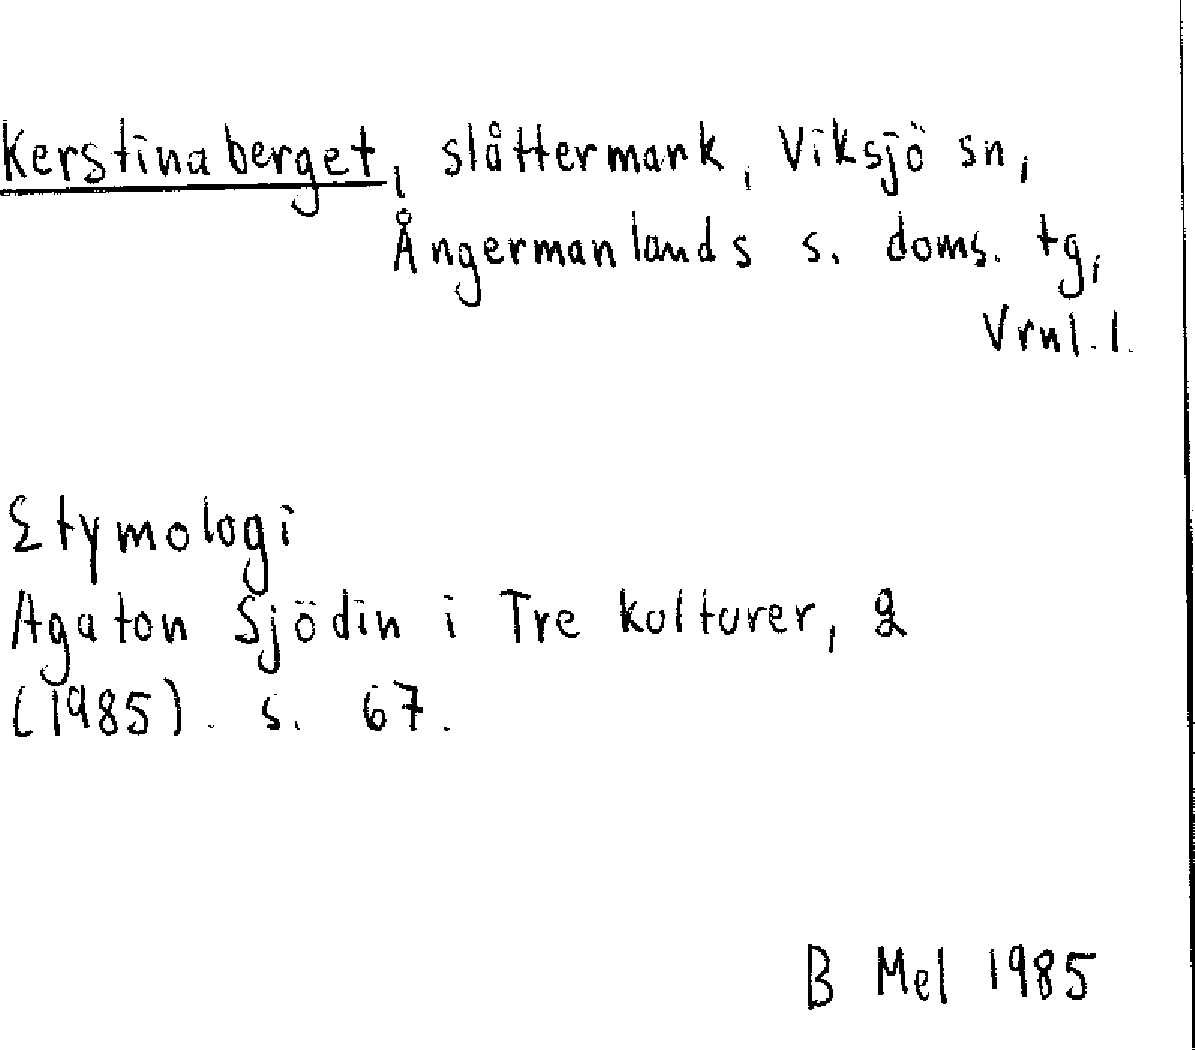 Kerstinaberget, slåttermark, Viksjö sn,
Ångermanlands s. doms. tg,
Vrnl. l.
Etymologi
Agaton Sjödin i Tre kulturer, 2
(1985). s. 67.
B Mel 1985